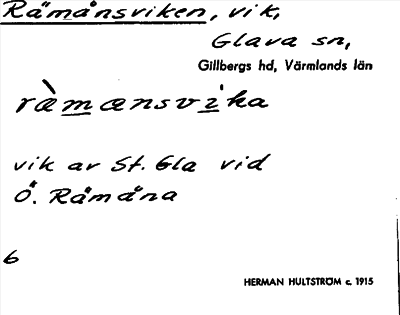 Råmånsviken, vik,
Glava sn,
Gillbergs hd, Värmlands län
ræ̀mænsvika
vik av St. Gla vid
Ö. Råmåna
6
HERMAN HULTSTRÖM c. 1915